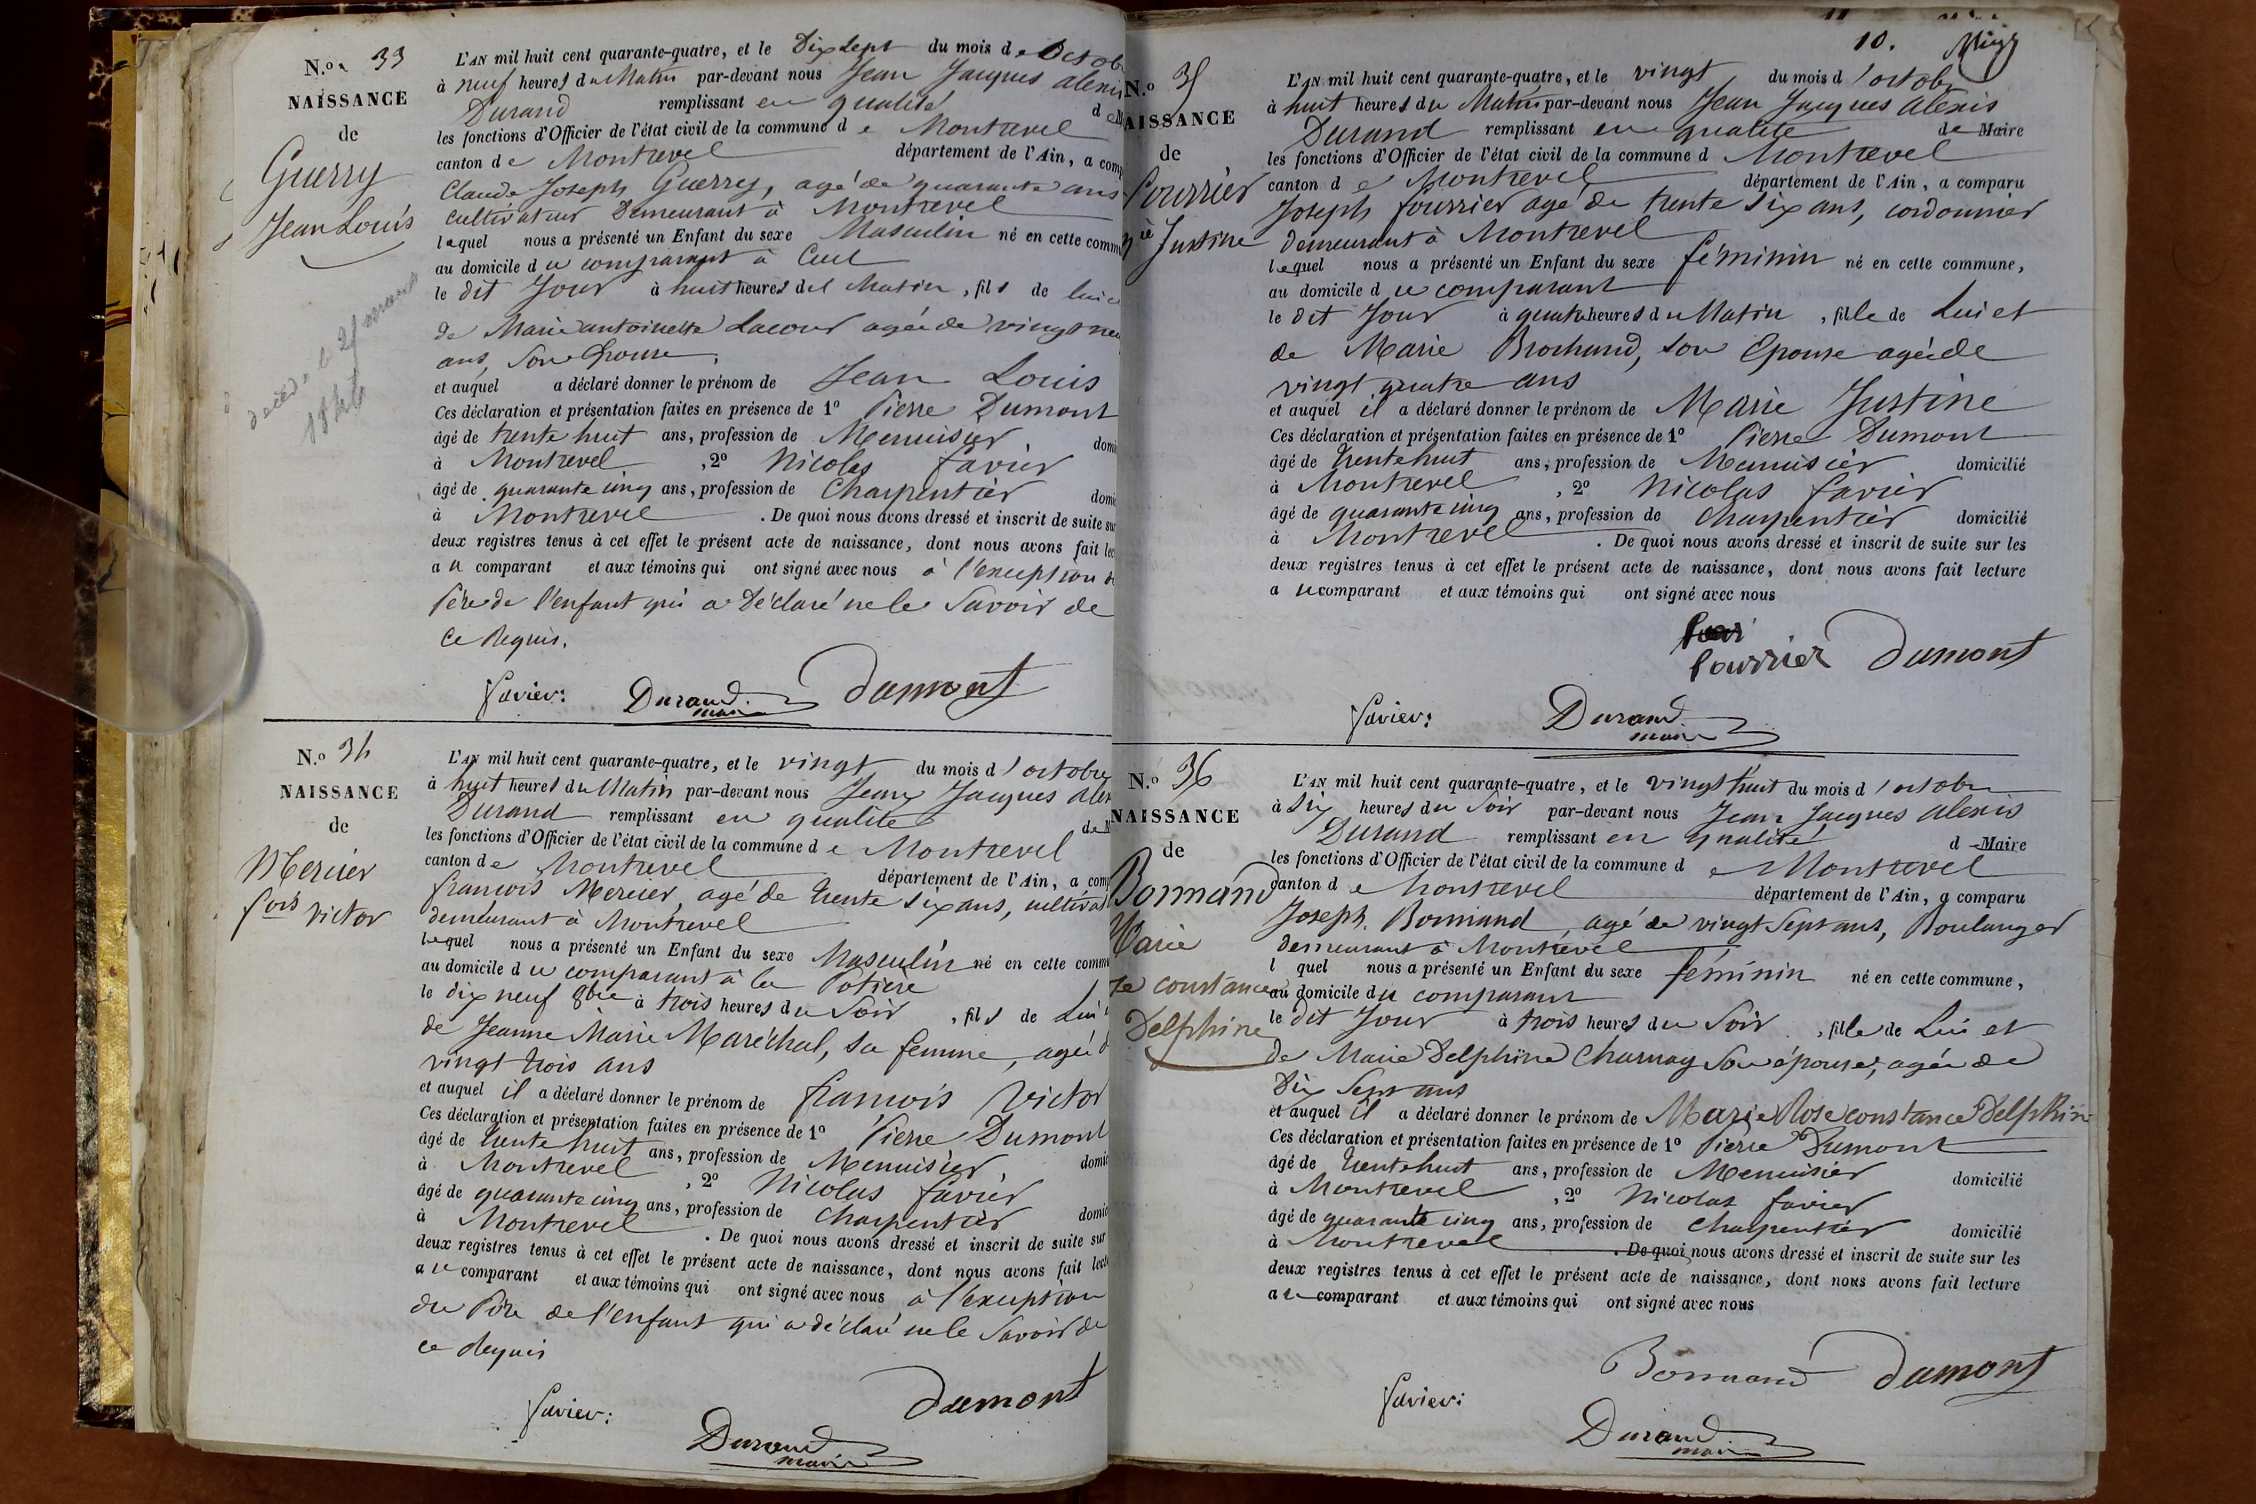 N.o 33
NAISSANCE
de
Guerry
Jean Louis
décédé le 25 mars
1846
L'AN mil huit cent quarante-quatre, et le Dix Sept du mois d'e Octob
à neuf heures du Matin par-devant nous Jean Jacques alexis
Durand remplissant en qualité d
les fonctions d'Officier de l'état civil de la commune de Montrevel
canton de Montrevel département de l'Ain, a comp
Claude Joseph Guerry, agé de quarante ans
cultivateur Demeurant à Montrevel
lequel nous a présenté un Enfant du sexe Masculin né en cette commu
au domicile du comparant à Cuet
le dit Jour à huit heures du Matin, fils de lui
de Marie antoinette Lacour agée de vingt neu
ans, son Epouse.
et auquel a déclaré donner le prénom de Jean Louis
Ces déclaration et présentation faites en présence de 1o Pierre Dumont
âgé de trente huit ans, profession de Menuisier, domi
à Montrevel, 2o Nicolas favier
âgé de quarante cinq ans, profession de Charpentier domi
à Montrevel. De quoi nous avons dressé et inscrit de suite su
deux registres tenus à cet effet le présent acte de naissance, dont nous avons fait lec
au comparant et aux témoins qui ont signé avec nous à l'exception
Père de l'enfant qui a Déclaré ne le Savoir de
ce Requis.
favier: Durand maire Dumont
N.o 34
NAISSANCE
de
Mercier
fois victor
L'AN mil huit cent quarante-quatre, et le vingt du mois d'octobre
à huit heures du Matin par-devant nous Jean Jacques alex
Durand remplissant en qualité de M
les fonctions d'Officier de l'état civil de la commune de Montrevel
canton de Montrevel département de l'Ain, a comp
francois Mercier, agé de trente six ans, cultivat
demeurant à Montrevel
lequel nous a présenté un Enfant du sexe Masculin né en cette comm
au domicile du comparant à la Potiere
le dix neuf 8bre à trois heures du Soir, fils de Lui
de Jeanne Marie Maréchal, sa femme, agée d
vingt trois ans
et auquel il a déclaré donner le prénom de francois Victor
Ces déclaration et présentation faites en présence de 1o Pierre Dumont
âgé de trente huit ans, profession de Menuisier, domic
à Montrevel, 2o Nicolas favier
âgé de quarante cinq ans, profession de Charpentier domic
à Montrevel. De quoi nous avons dressé et inscrit de suite sur
deux registres tenus à cet effet le présent acte de naissance, dont nous avons fait lect
au comparant et aux témoins qui ont signé avec nous à l'exception
du Père de l'enfant qui a déclaré ne le Savoir de
ce Requis
favier: Durand maire Dumont
10.
N.o 35
AISSANCE
de
fourrier
Justine
L'AN mil huit cent quarante-quatre, et le vingt du mois d'octob
à huit heures du Matin par-devant nous Jean Jacques Alexis
Durand remplissant en qualité de Maire
les fonctions d'Officier de l'état civil de la commune d Montrevel
canton de Montrevel département de l'Ain, a comparu
Joseph fourrier agé de trente six ans, cordonnier
demeurant à Montrevel
lequel nous a présenté un Enfant du sexe féminin né en cette commune,
au domicile du comparant
le dit Jour à quatre heures du Matin, fille de Lui et
de Marie Brochand, son Epouse agée de
vingt quatre ans
et auquel il a déclaré donner le prénom de Marie Justine
Ces déclaration et présentation faites en présence de 1o Pierre Dumont
âgé de trente huit ans, profession de Menuisier domicilié
à Montrevel, 2o Nicolas favier
âgé de quarante cinq ans, profession de Charpentier domicilié
à Montrevel. De quoi nous avons dressé et inscrit de suite sur les
deux registres tenus à cet effet le présent acte de naissance, dont nous avons fait lecture
au comparant et aux témoins qui ont signé avec nous
fourrier Dumont
favier: Durand maire
N.o 36
NAISSANCE
de
Bonnand
Marie
se constance
Delphine
L'AN mil huit cent quarante-quatre, et le vingt huit du mois d'octobre
à Six heures du Soir par-devant nous Jean Jacques Alexis
Durand remplissant en qualité d Maire
les fonctions d'Officier de l'état civil de la commune de Montrevel
canton de Montrevel département de l'Ain, a comparu
Joseph Bonnand, agé de vingt Sept ans, Boulanger
demeurant à Montrevel
l quel nous a présenté un Enfant du sexe féminin né en cette commune,
au domicile du comparant
le dit Jour à trois heures du Soir, fille de Lui et
de Marie Delphine Charnay Son épouse, agée de
Dix Sept ans
et auquel il a déclaré donner le prénom de Marie Rose constance Delphine
Ces déclaration et présentation faites en présence de 1o Pierre Dumont
âgé de trente huit ans, profession de Menuisier domicilié
à Montrevel, 2o Nicolas favier
âgé de quarante cinq ans, profession de Charpentier domicilié
à Montrevel. De quoi nous avons dressé et inscrit de suite sur les
deux registres tenus à cet effet le présent acte de naissance, dont nous avons fait lecture
au comparant et aux témoins qui ont signé avec nous
Bonnand Dumont
favier: Durand maire